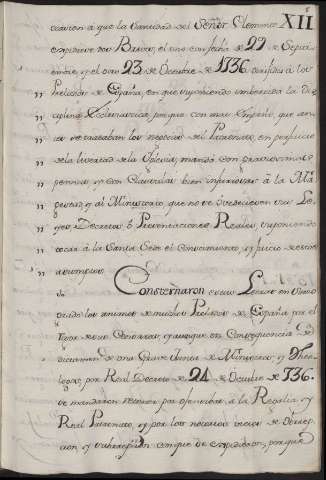 ocasion à que la Santidad del Señor Clemente XII
expidiese dos Bulas, el uno con fecha de 29 de Septi-
embre, y el otro 23 de Octubre de 1736 dirigidos à los
Prelados de España, en que suponiendo enflaquecida la Dis-
ciplina Eclesiastica, porque con mas empeño, que
se trataban los negocios del Patronato, en perjuicio
de la libertad de la Iglesia, manda con gravisimas
penas, y con Clausulas bien injuriosas à la Ma-
gestad, y al Ministerio, que no se obedeciesen sus Le-
yes, Decretos ò Provisiones Reales, suponiendo
tocar à la Santa Sede el Conocimiento, y juicio de estos
asumptos.
Consternaron estas Letras en
los animos de muchos Prelados de España por el
rigor de sus Censuras, y aunque en Consequencia de
dictamen de una Grave Junta de Ministros y Theo-
logos, por Real Decreto de 24 de Octubre de 736.
se mandaron recoger por ofensibas à la Regalia, y
Real Patronato, y por los notorios vicios de obrep-
cion, y subrepcion con que se expidieron, porque